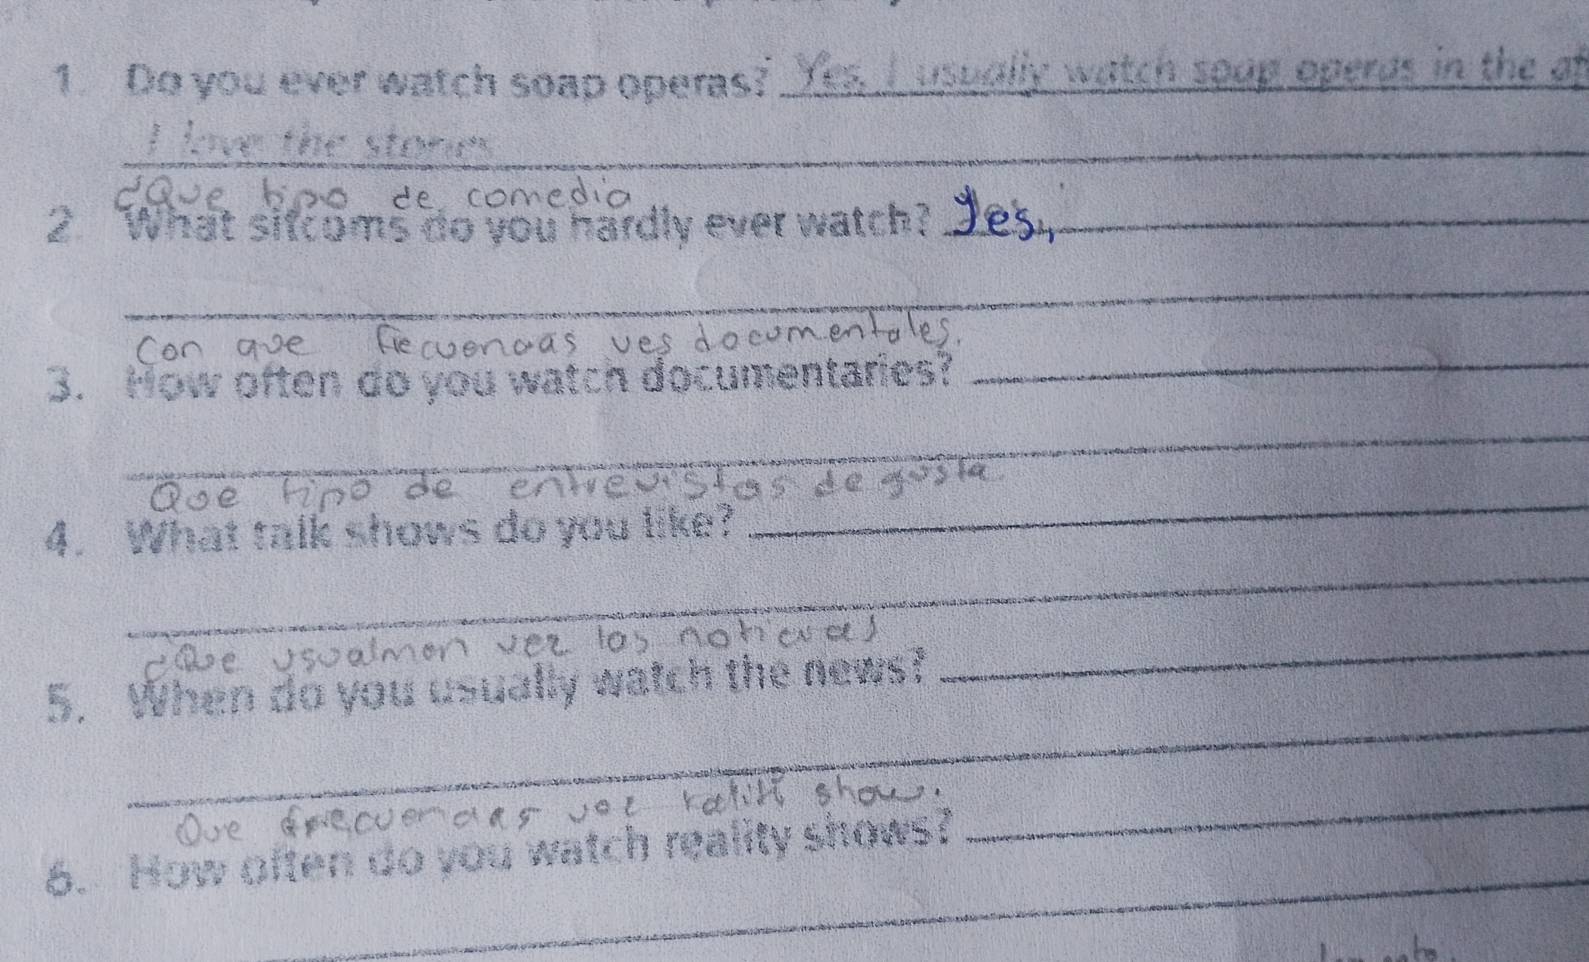 1. Do you ever watch soap operas? Yes, I usually watch soap operas in the af
I love the stories
¿Que tipo de comedia
2. What sitcoms do you hardly ever watch? Yes,
Con que frecuencias ves documentales.
3. How often do you watch documentaries?
Que tipo de entrevistas de gusta.
4. What talk shows do you like?
¿Que usualmen vez las
5. When do you usually watch the news?
Que show.
6. How often do you watch reality shows?